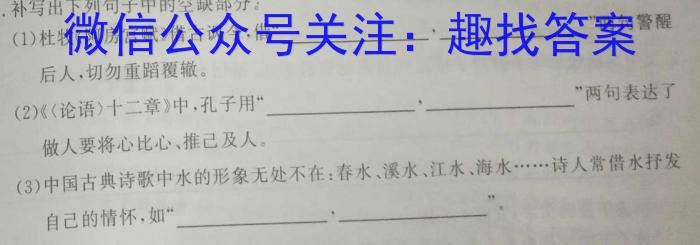 .补写出下列句子中的空缺部分。
微信公众号关注：趣找答案
(1)杜牧 警醒
后人,切勿重蹈覆辙。
(2)《〈论语〉十二章》中,孔子用“ , ”两句表达了
做人要将心比心、推己及人。
(3)中国古典诗歌中水的形象无处不在:春水、溪水、江水、海水……诗人常借水抒发
自己的情怀,如“ , ”。